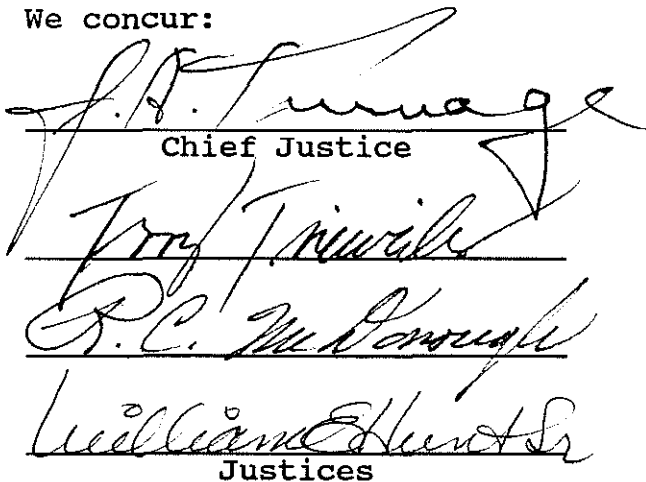 We concur:
J. A. Turnage
Chief Justice
Terry Trieweiler
R. C. McDonough
William E Hunt Sr
Justices